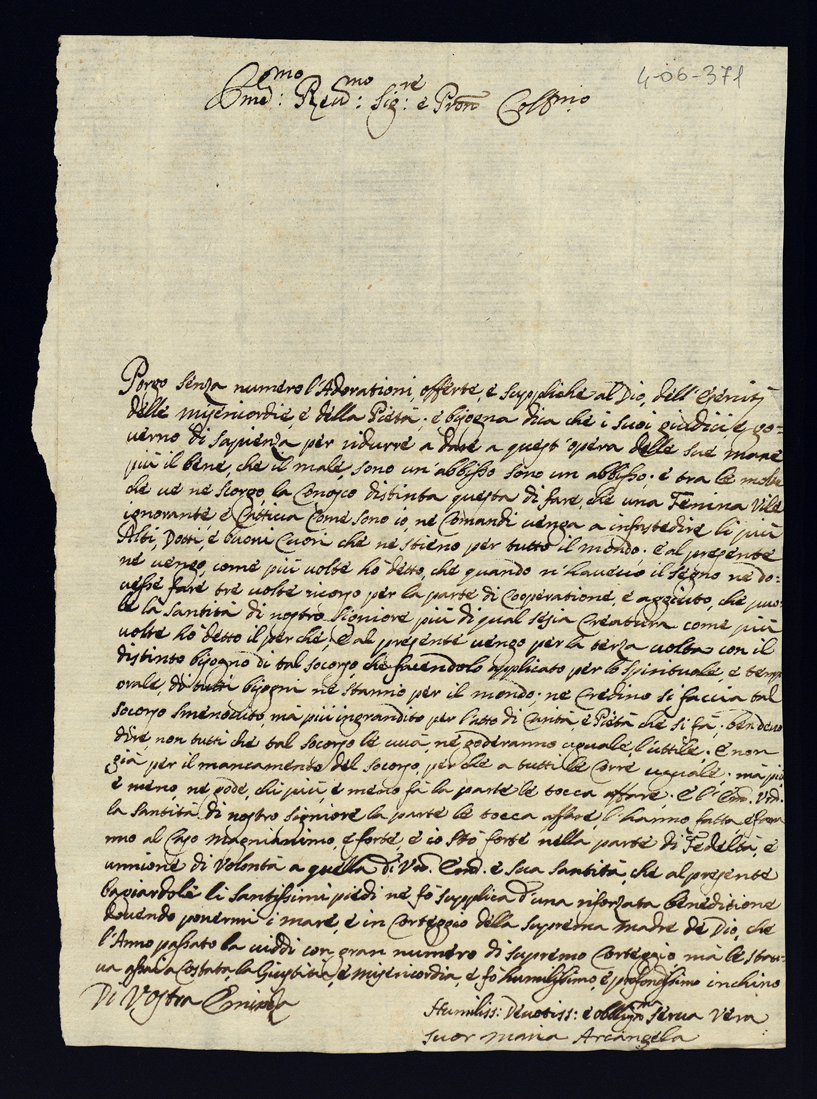 4-06-371
Em:mo Reu:mo Sig:re e Pron Coll:mo
Porgo senza numero l'Adorationi, offerte, e suppliche al Dio, dell'eserciti
delle misericordie, e della Pietà. e bisogna dica che i suoi giudicij, e go=
uerno di sapienza per ridurre a dare a quest'opera delle sue mane
più il bene, che il male, sono un'abbisso sono un abbisso. e tra le molte
che ue ne scorgo, la conosco distinta questa di fare, che una Femina Vile
ignorante, e Cattiua come sono io, ne comandi uenga a infastedire li più
Alti, Dotti, e buoni Cuori che ne stieno per tutto il mondo. e al presente
ne uengo, come più uolte hò detto, che quando n'hauessi il segno ne do=
uesse fare tre uolte ricorso per la parte di Cooperatione, e aggiuto, che puo=
le la santità di nostro signiore più di qual sesia Creatura come più
uolte hò detto il perche, e al presente uengo per la terza uolta con il
distinto bisogno di tal socorso, che facendolo applicato per lo spirituale, e temp
orale, di tutti bisogni ne stanno per il mondo. ne credino si faccia tal
socorso smenouito, mà più ingrandito per l'atto di Carità, e Pietà che si fà. ben deuo
dire, non tutti che tal socorso le uuà, ne goderanno uguale l'uttile. e non
già per il mancamento del socorso, perche a tutti le Corre uguale; mà più
e meno, ne gode, chi più, e meno fà la parte le tocca affare. e l'Em. Vra.
la santità di nostro signiore la parte le tocca affare, l'hanno fatta, e
nno al Caso magnianimo, e forte, e io stò forte nella parte di Fedeltà, e
unnione di Volontà a quella di Vra. Em. e sua santità, che al presente
baciardole li santissimi piedi ne fò supplica d'una riforzata beneditione
douendo ponermi i mare, e in Corteggio della suprema madre de Dio, che
l'Anno passato la uiddi con gran numero di supremo Corteggio, mà le staua
ua assai a Costata la Giustitia, e misericordia, e fò humilissimo, e profondissimo inchino
Di Vostra Eminza
Humiliss: Deuotiss: e oblligma serua Vera
suor maria Arcangela